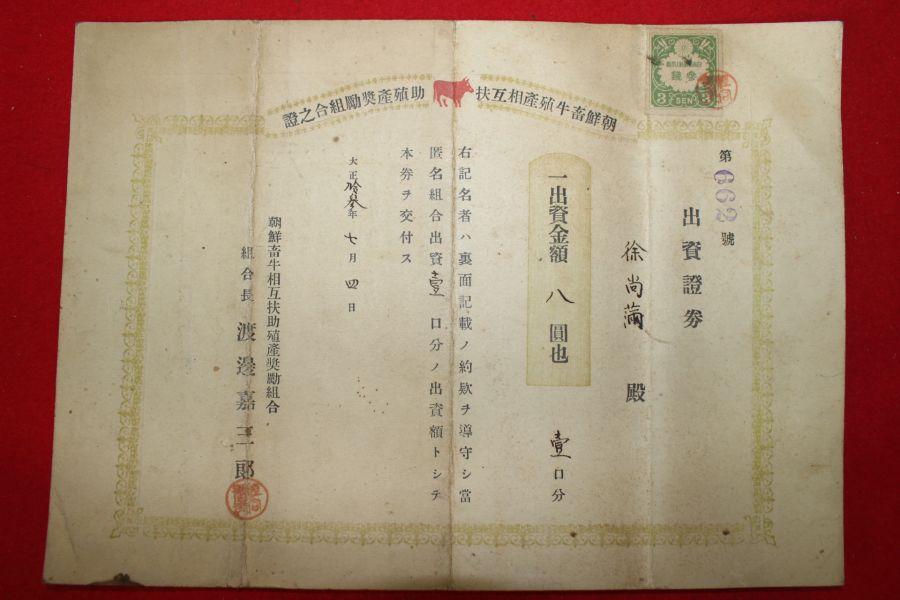 朝鮮畜牛殖產相互扶助殖產奬勵組合之證
參錢
3 SEN 3
第662號
出資證劵
徐尚 殿
一出資金額 八 圓也
壹口分
右記名者ハ裏面記載ノ約欵ヲ導守シ當
匿名組合出資壹口分ノ出資額トシテ
本券ヲ交付ス
大正拾參年七月四日
朝鮮畜牛相互扶助殖產奬勵組合
組合長 渡邊嘉三郎